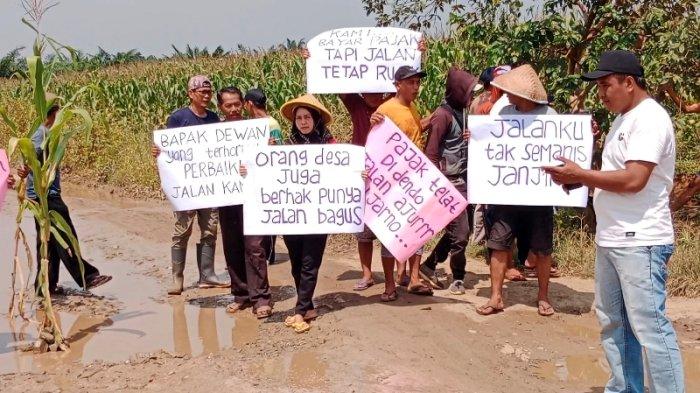 KAMI
BAYAR PAJAK
TAPI JALAN
TETAP RUSAK
BAPAK DEWAN
yang terhor
PERBAIK
JALAN KAM
ORANG DESA
JUGA
BERHAK PUNYA
JALAN BAGUS
PAJAK TELAT
DI DENDO
JALAN AJURRR
JARNO...
JALANKU
TAK SEMANIS
JANJI